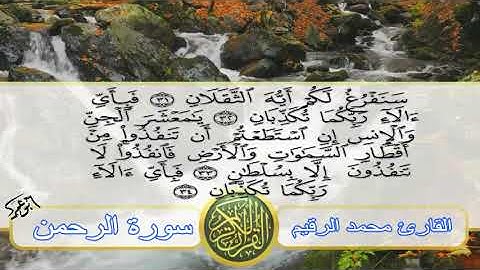 سَنَفْرُغُ لَكُمْ أَيُّهَ ٱلثَّقَلَانِ ٣١ فَبِأَيِّ
ءَالَآءِ رَبِّكُمَا تُكَذِّبَانِ ٣٢ يَـٰمَعْشَرَ ٱلْجِنِّ
وَٱلْإِنسِ إِنِ ٱسْتَطَعْتُمْ أَن تَنفُذُوا۟ مِنْ
أَقْطَارِ ٱلسَّمَـٰوَٰتِ وَٱلْأَرْضِ فَٱنفُذُوا۟ لَا
تَنفُذُونَ إِلَّا بِسُلْطَـٰنٍ ٣٣ فَبِأَيِّ ءَالَآءِ
رَبِّكُمَا تُكَذِّبَانِ ٣٤
القارئ محمد الرقيم
سورة الرحمن